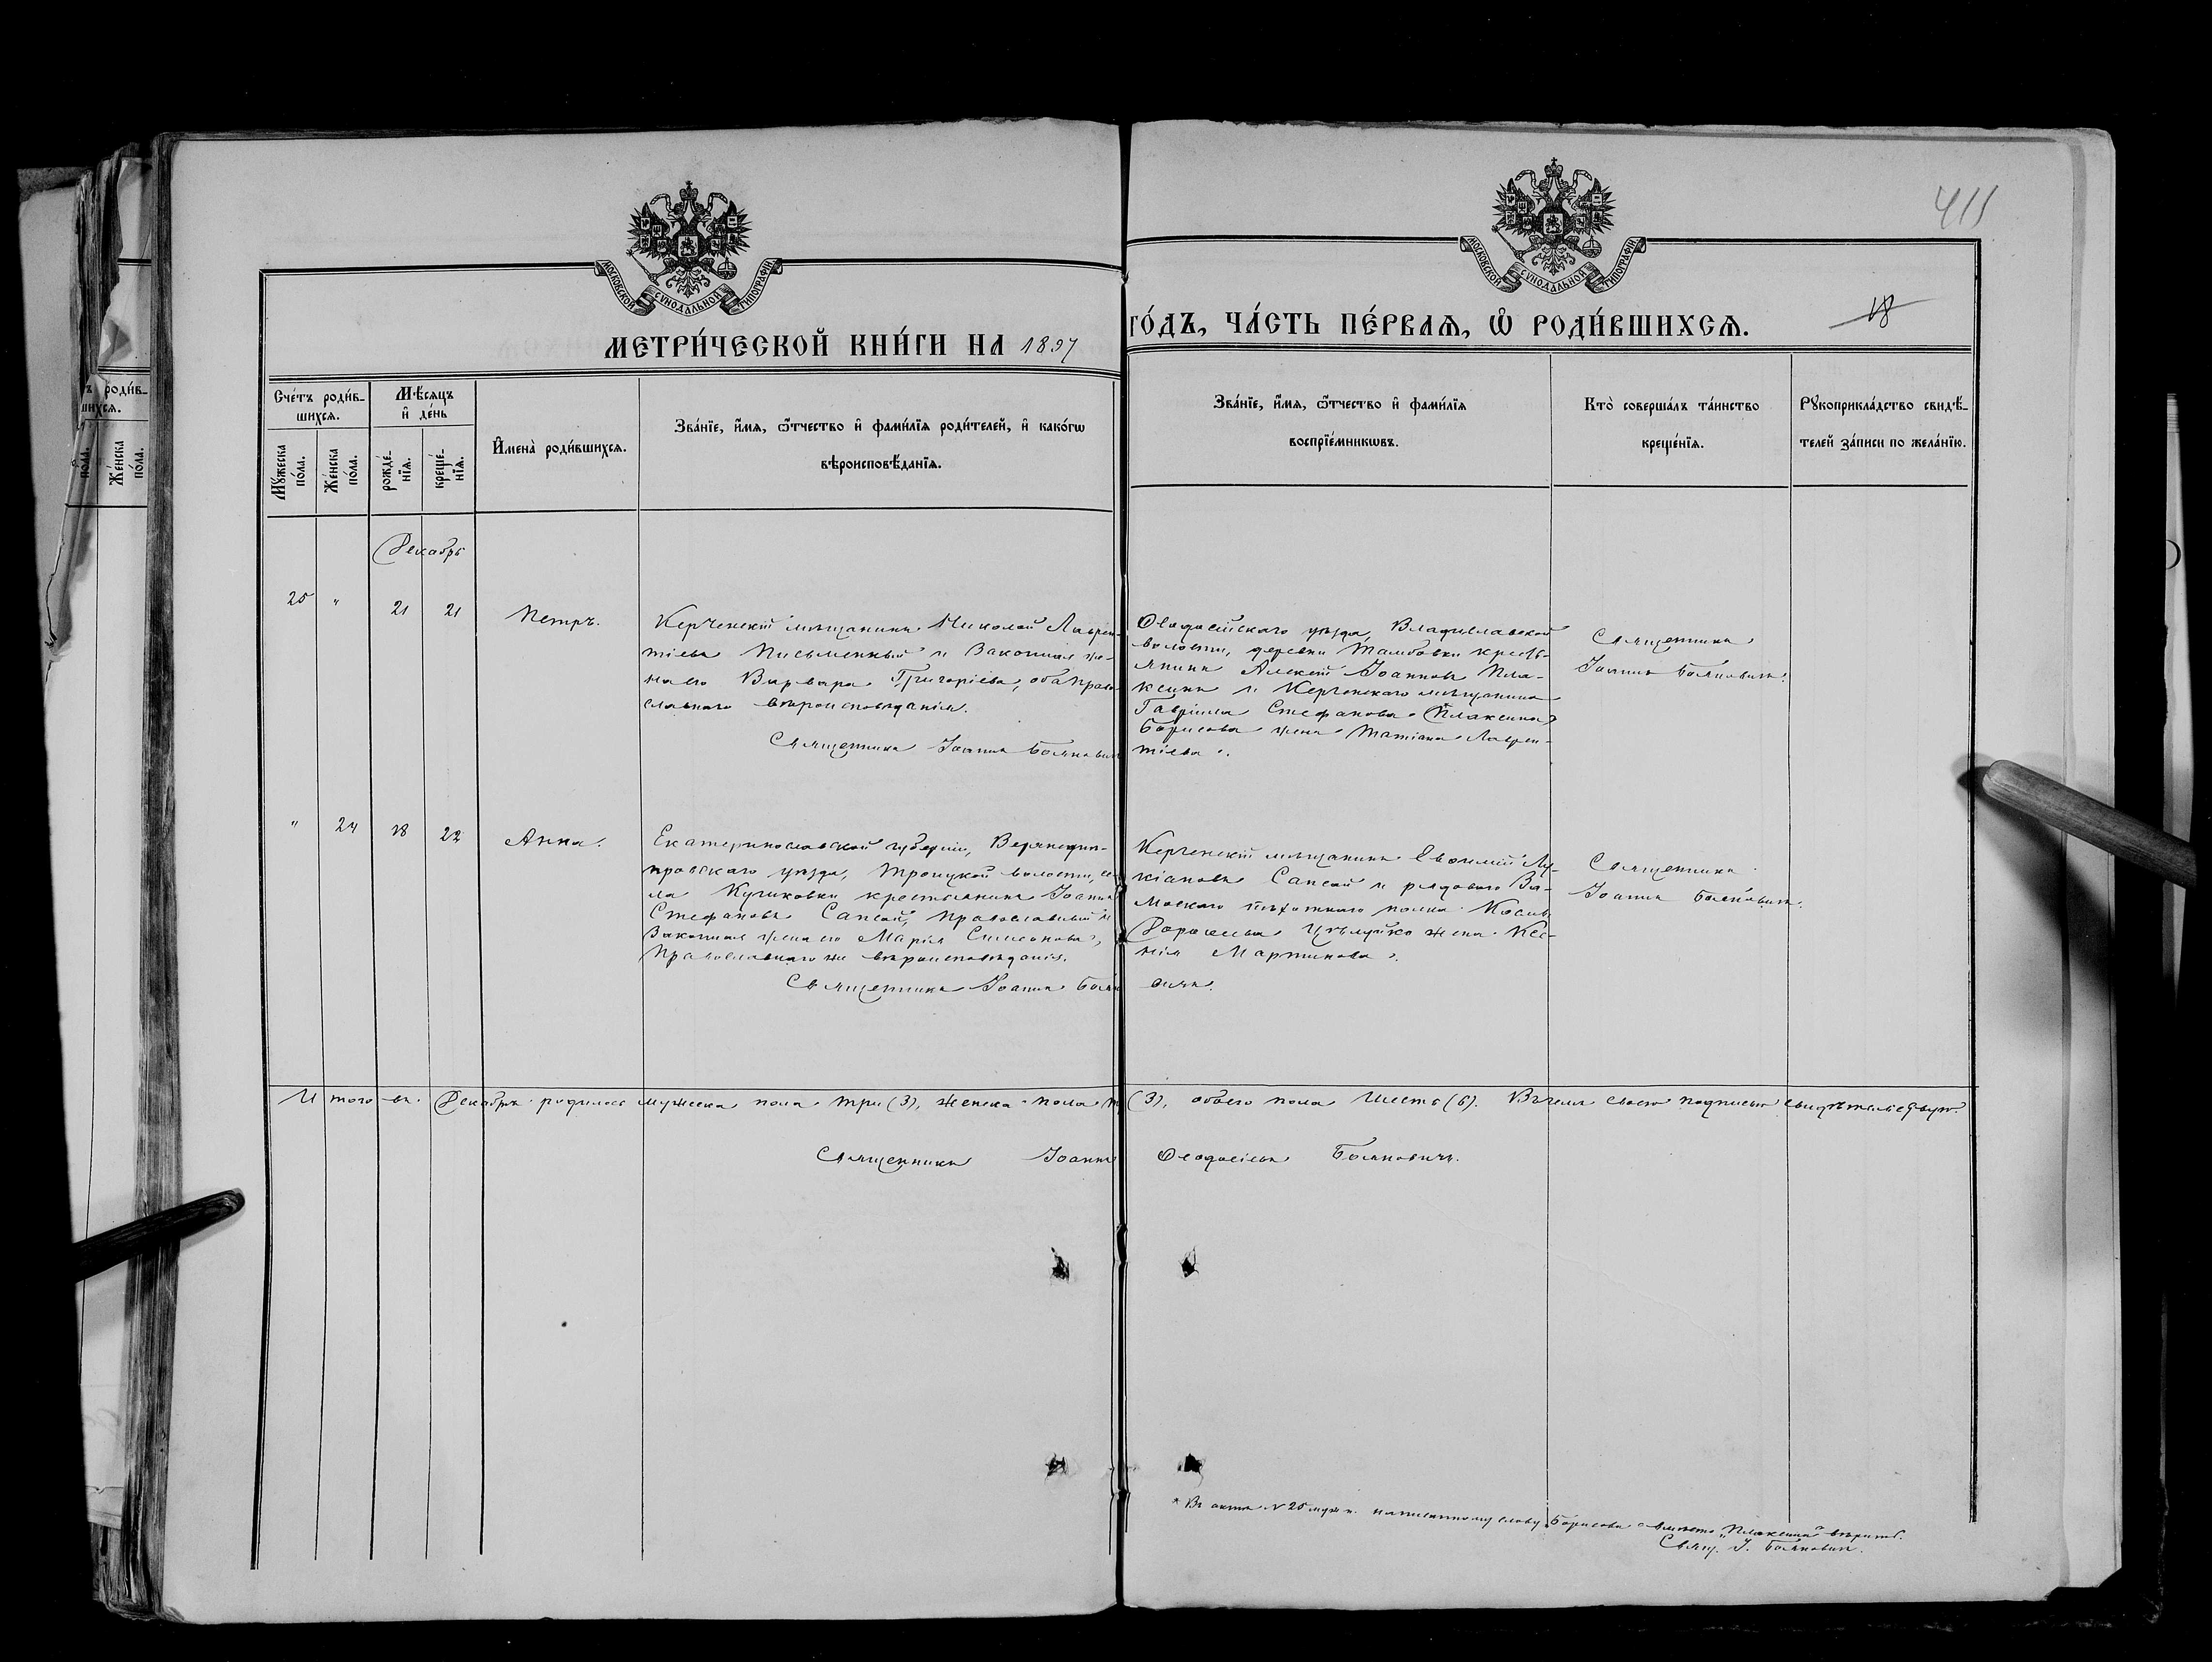 411
18
МОСКОВСКОЙ СУНОДАЛЬНОЙ ТИПОГРАФІИ
МОСКОВСКОЙ СУНОДАЛЬНОЙ ТИПОГРАФІИ
МЕТРИ́ЧЕСКОЙ КНИ́ГИ НА 1897
ГО́ДЪ, ЧА́СТЬ ПЕ́РВАѦ, Ѡ҆ РОДИ́ВШИХСѦ.
Сче́тъ роди́в-
шихсѧ.
Мꙋ́жеска по́ла.
Же́нска по́ла.
Мѣ́сѧцъ
и҆ де́нь
рожде́-
нїѧ.
креще́-
нїѧ.
И҆мена̀ роди́вшихсѧ.
Зва́нїе, и҆́мѧ, ѻ҆́тчество и҆ фами́лїѧ роди́телей, и҆ како́гѡ
вѣроисповѣ́данїѧ.
Зва́нїе, и҆́мѧ, ѻ҆́тчество и҆ фами́лїѧ
воспрїе́мникѡвъ.
Кто̀ соверша́лъ та́инство
креще́нїѧ.
Рꙋкоприкла́дство свидѣ́-
телей за́писи по жела́нїю.
Декабрь
25 " 21 21 Петръ.
Керченскій мѣщанинъ Николай Лаврен-
тіевъ Письменный и законная же-
на его Варвара Григоріева, оба право-
славнаго вѣроисповѣданія.
Священникъ Іоаннъ Бояновичъ
Ѳеодосійскаго уѣзда, Владиславской
волости, деревни Тамбовки кресть-
янинъ Алексій Іоанновъ Пла-
ксинъ и Керченскаго мѣщанина
Гавріила Стефанова "Плаксина"
Борисова жена Татіана Лаврен-
тіева.
Священникъ
Іоаннъ Бояновичъ.
" 24 18 22 Анна.
Екатеринославской губерніи, Верхнеднѣ-
провскаго уѣзда, Троицкой волости, се-
ла Куликовки крестьянинъ Іоаннъ
Стефановъ Сапсай, православный и
законная жена его Марія Симеонова,
православнаго же вѣроисповѣданія.
Священникъ Іоаннъ Бояновичъ.
Керченскій мѣщанинъ Евѳимій Лу-
кіановъ Сапсай и рядового
пѣхотнаго полка Космы
жена Ксе-
нія Мартинова.
Священникъ
Іоаннъ Бояновичъ.
Итого въ Декабрѣ родилось мужеска пола три (3), женска пола (3), обоего пола шесть (6). Въ чемъ своею подписью свидѣтельствую.
Священникъ Іоаннъ Ѳеодосіевъ Бояновичъ.
* Въ актѣ № 25 муж. п. написанному слову "Борисова" вмѣсто "Плаксина" вѣрить.
Свящ. І. Бояновичъ.